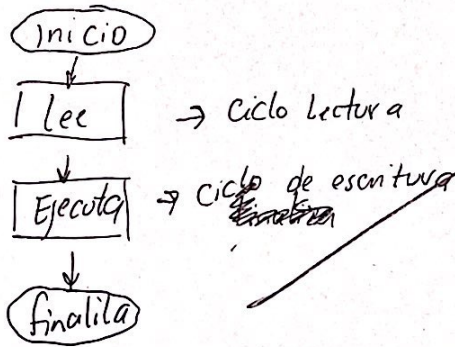 inicio
lee → Ciclo Lectura
Ejecuta → Ciclo de escritura
finalila